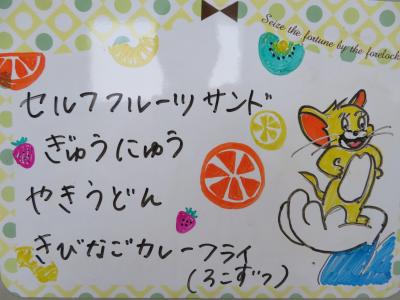 Seize the fortune by the forelock
セルフフルーツサンド
ぎゅうにゅう
やきうどん
きびなごカレーフライ
(ろこずっ)